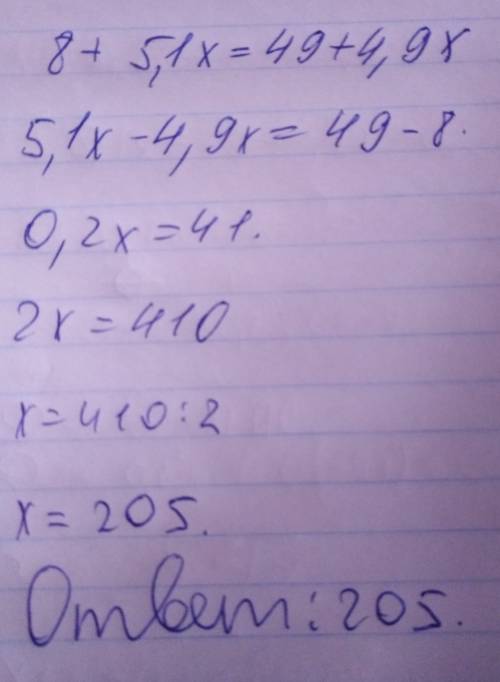 8+ 5,1x=49+4,9x
5,1x-4,9x=49-8.
0,2x=41.
2x=410
x=410:2
x=205.
Ответ:205.